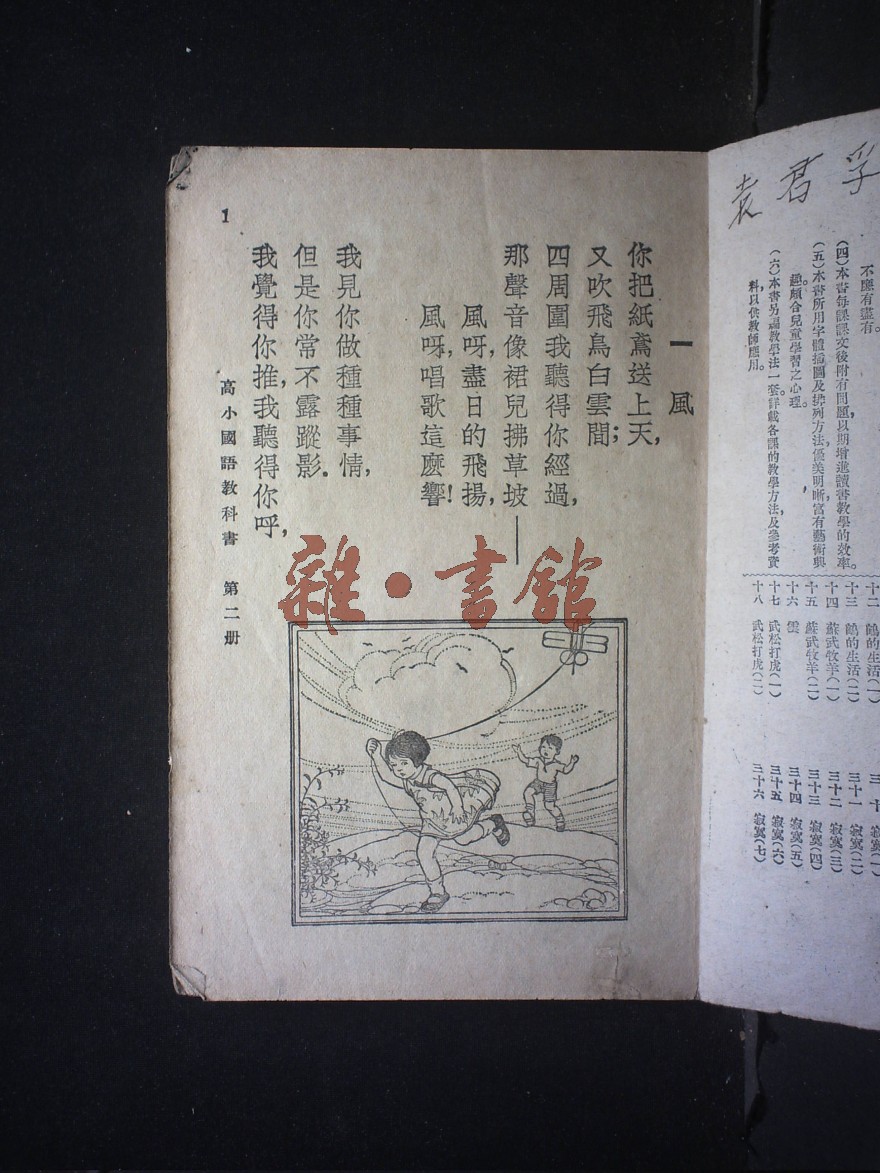 袁君孚
不應有盡有。
(四)本書每課課文後附有問題,以期增進讀書教學的效率。
(五)本書所用字體插圖及排列方法,優美明晰,富有藝術興
趣,頗合兒童學習之心理。
(六)本書另編教學法一套,詳載各課的教學方法及參考資
料,以供教師應用。
十三 鷗的生活(二)
十四 蘇武牧羊(一)
十五 蘇武牧羊(二)
十六 雲
十七 武松打虎(一)
十八 武松打虎(二)
三十一 寂寞(二)
三十二 寂寞(三)
三十三 寂寞(四)
三十四 寂寞(五)
三十五 寂寞(六)
三十六 寂寞(七)
一 風
你把紙鳶送上天,
又吹飛鳥白雲間;
四周圍我聽得你經過,
那聲音像裙兒拂草坡——
風呀,盡日的飛揚,
風呀,唱歌這麽響!
我見你做種種事情,
但是你常不露蹤影.
我覺得你推,我聽得你呼,
高小國語教科書 第二册
1
雜·書館